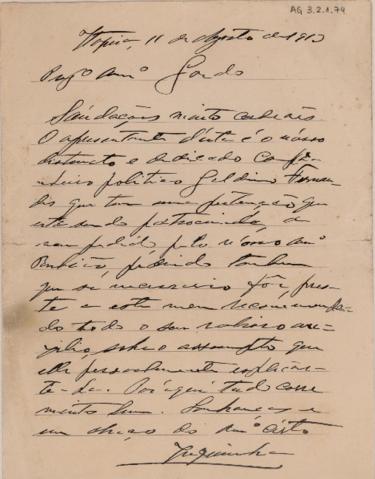 AG 3.2.1.79
Itapira, 11 de Agosto de 1913
Prezº Amº Gordo
Saudações muito cordeais
O apresentante d'esta é o nosso
distincto e dedicado compa-
nheiro politico Galdino Fernan-
des que tem uma pretenção que
está sendo patrocinada, a
meu pedido pelo nosso amº
pedindo tambem
que se necessario fôr, pres-
te a este meu recommenda-
do todo o seu valioso au-
xilio sobre o assumpto que
elle pessoalmente explicar-
te-á. Por aqui tudo corre
muito bem. Lembranças e
um abraço do amº certo